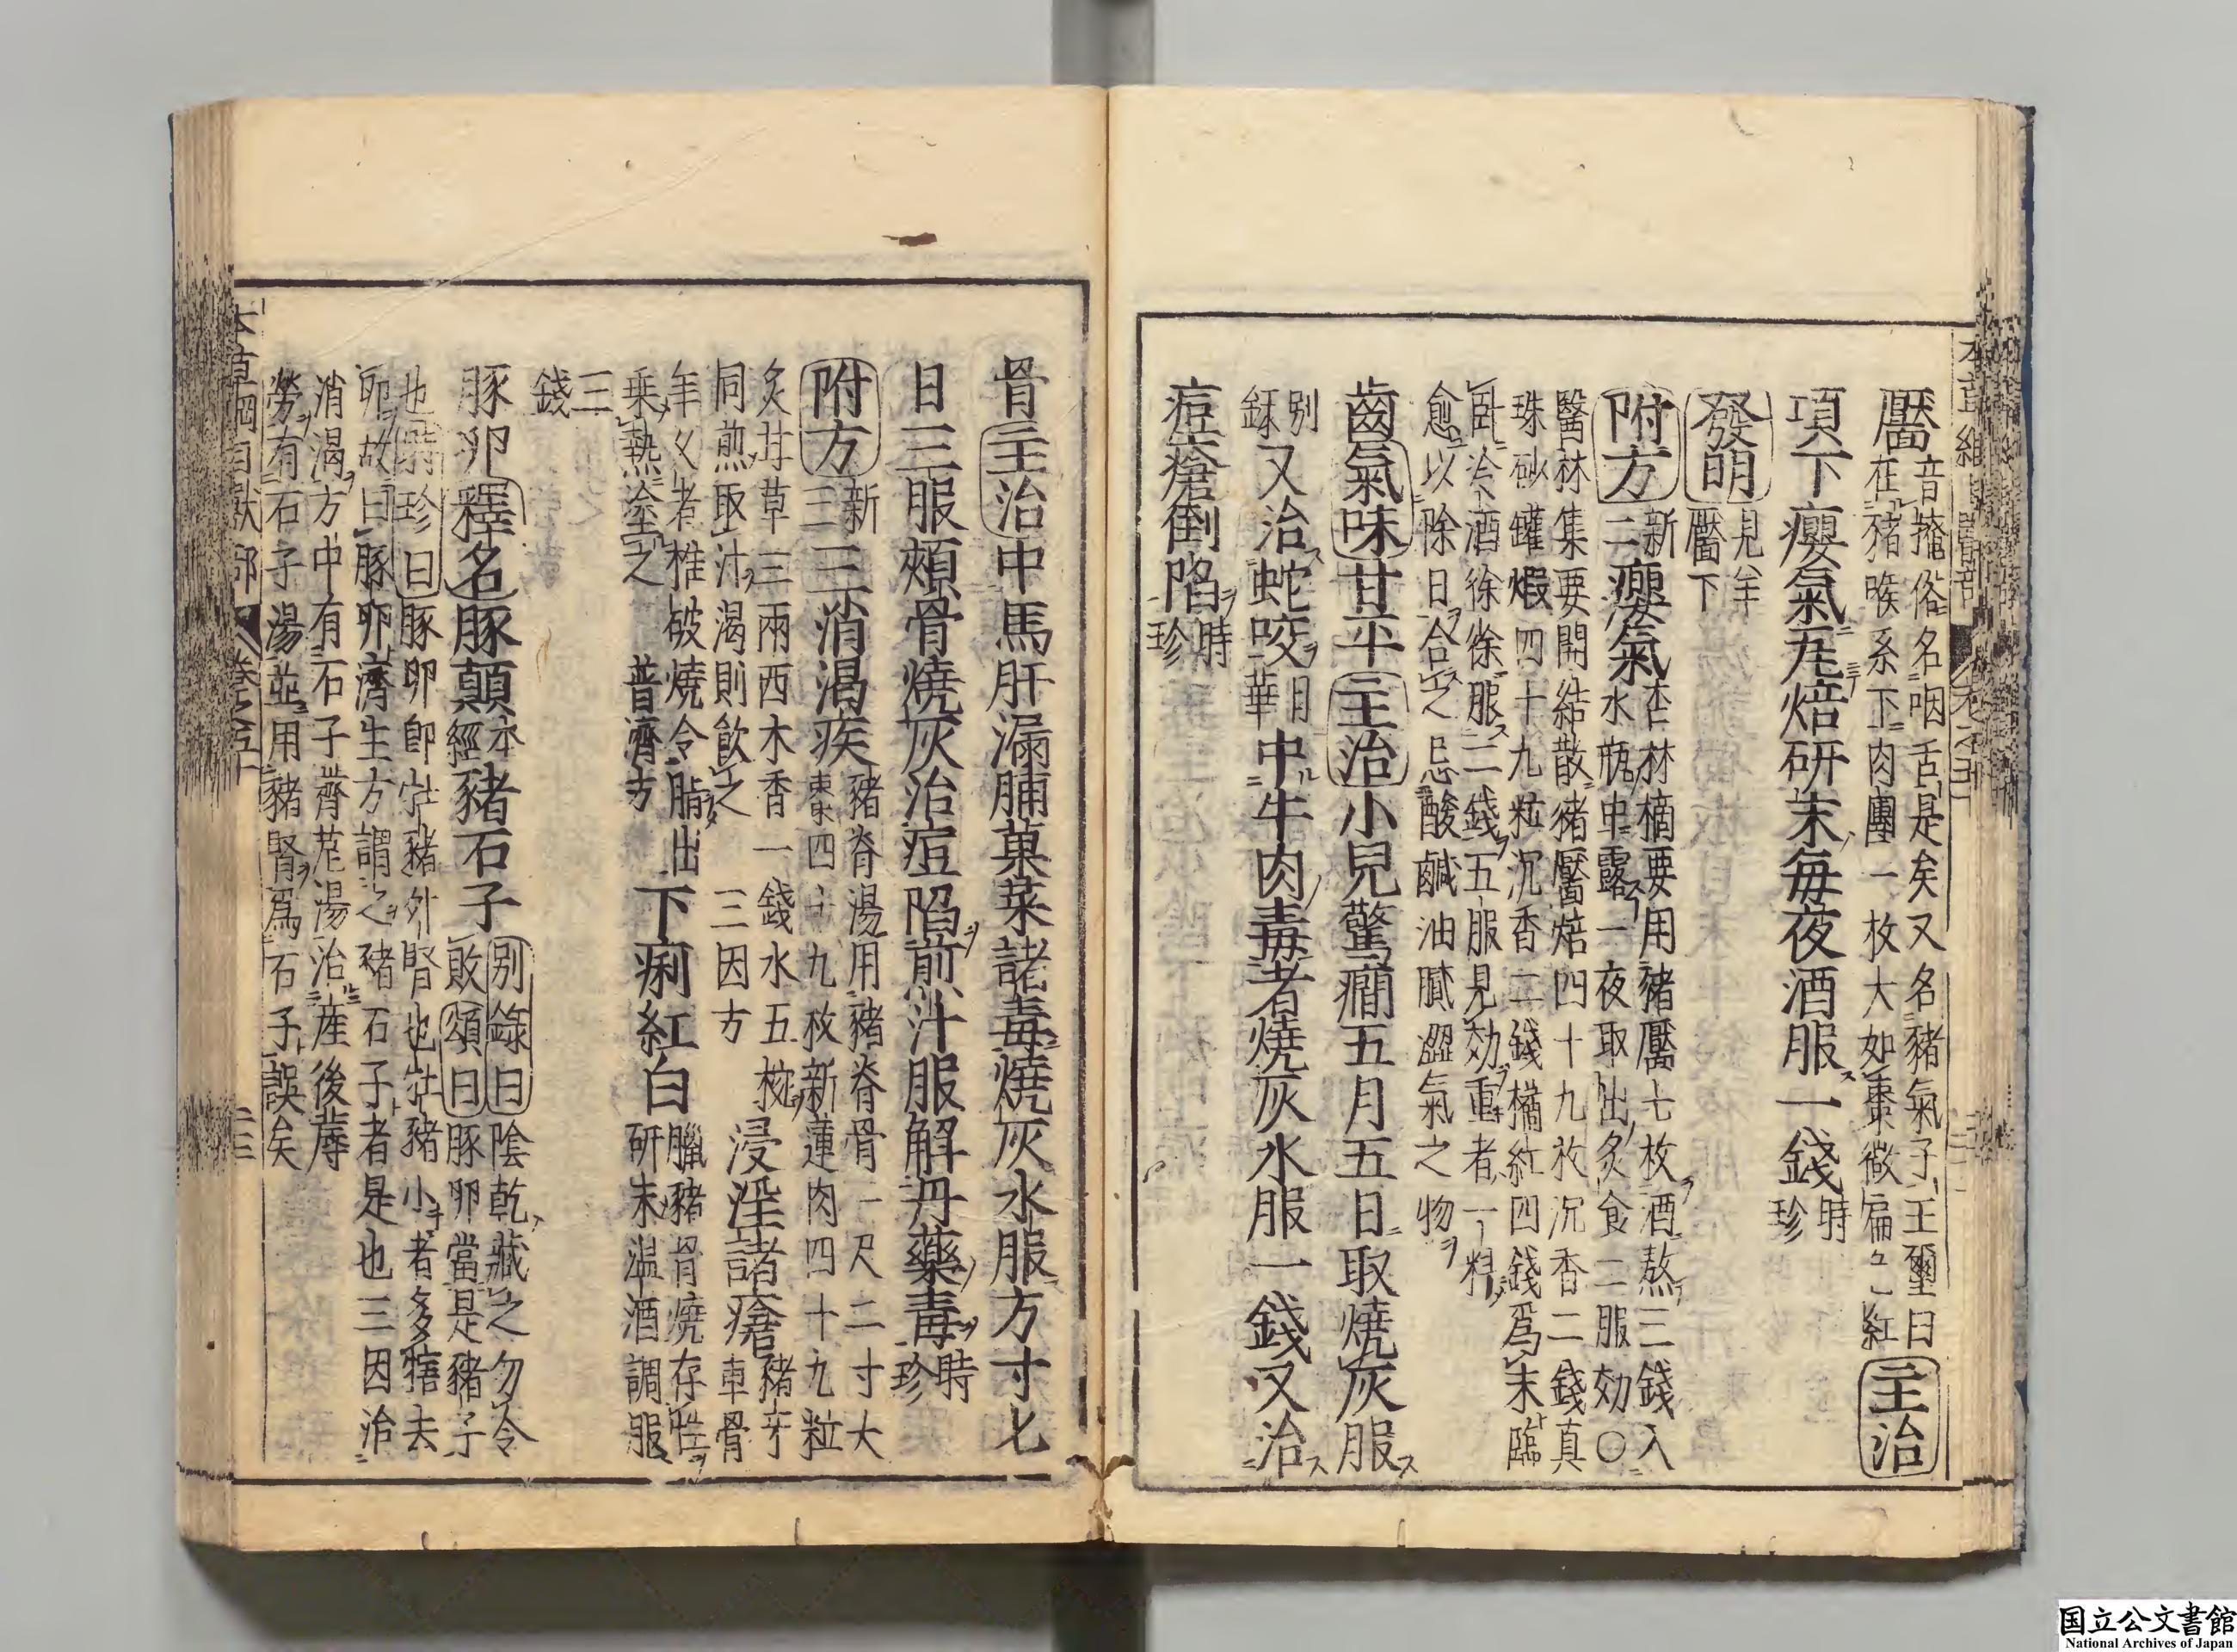 靨音掩俗名咽舌是矣又名豬氣子王璽曰
在豬喉系下肉團一枚大如棗微扁色紅主治
項下癭氣瓦焙研末每夜酒服一錢時珍
發明見羊靨下
附方新二癭氣杏林摘要用豬靨七枚酒熬三錢入
水瓶中露一夜取出炙食二服効〇
醫林集要開結散豬靨焙四十九枚沉香二錢真
珠砂罐煆四十九粒沉香二錢橘紅四錢爲末臨
臥冷酒徐徐服二錢五服見効重者一料
愈以除日合之忌酸鹹油膩澀氣之物
齒氣味甘平主治小兒驚癇五月五日取燒灰服
別錄又治蛇咬日華中牛肉毒者燒灰水服一錢又治
痘瘡倒陷時珍
骨主治中馬肝漏脯菓菜諸毒燒灰水服方寸匕
日三服頰骨燒灰治痘陷煎汁服解丹藥毒時珍
附方新三三消渴疾豬脊湯用豬脊骨一尺二寸大
棗四十九枚新蓮肉四十九粒
炙甘草三兩西木香一錢水五椀
同煎取汁渴則飲之三因方浸淫諸瘡豬牙車骨
年久者椎破燒令脂出
乘熱塗之普濟方下痢紅白臘豬骨燒存性
研末温酒調服
三錢
豚卵釋名豚顛本經豬石子別錄曰陰乾藏之勿令
敗頌曰豚卵當是豬子
也時珍曰豚卵卽牡豬外腎也牡豬小者多犗去
卵故曰豚卵濟生方謂之豬石子者是也三因治
消渴方中有石子薺苨湯治產後蓐
勞有石子湯並用豬腎爲石子誤矣
本草綱目獸部卷之五十
国立公文書館
National Archives of Japan